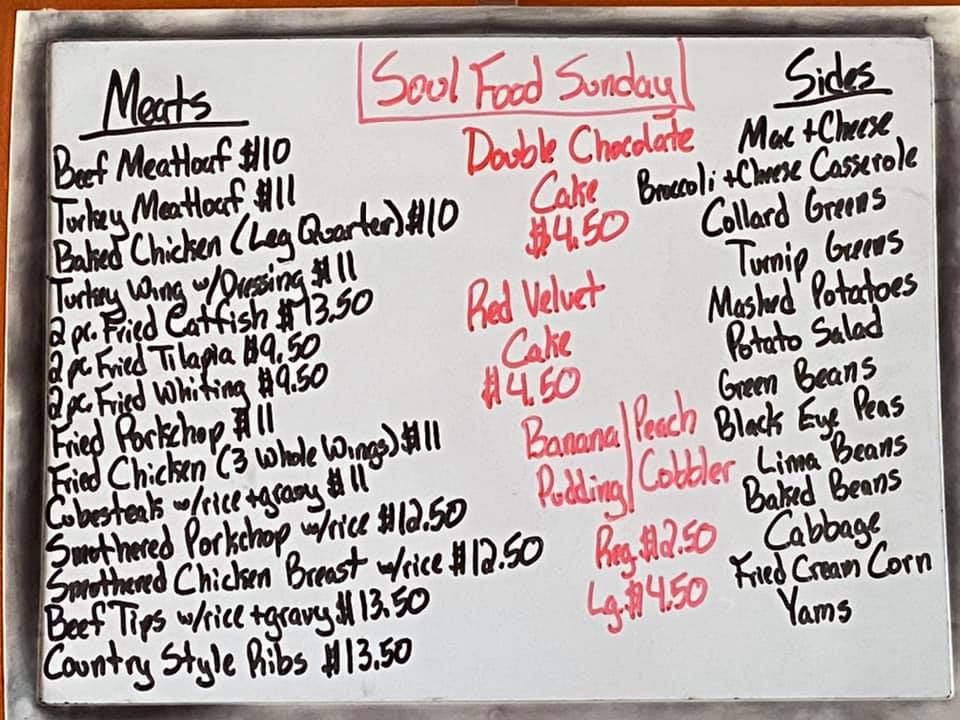 Meats
Beef Meatloaf $10
Turkey Meatloaf $11
Baked Chicken (Leg Quarter) $10
Turkey Wing w/Dressing $11
2 pc. Fried Catfish $13.50
2 pc Fried Tilapia $9.50
2 pc. Fried Whiting $9.50
Fried Porkchop $11
Fried Chicken (3 Whole Wings) $11
Cubesteak w/rice + gravy $11
Smothered Porkchop w/rice $12.50
Smothered Chicken Breast w/rice $12.50
Beef Tips w/rice + gravy $13.50
Country Style Ribs $13.50
Soul Food Sunday
Double Chocolate
Cake
$4.50
Red Velvet
Cake
$4.50
Banana | Peach
Pudding | Cobbler
Reg. $2.50
Lg. $4.50
Sides
Mac + Cheese
Broccoli + Cheese Casserole
Collard Greens
Turnip Greens
Mashed Potatoes
Potato Salad
Green Beans
Black Eye Peas
Lima Beans
Baked Beans
Cabbage
Fried Cream Corn
Yams